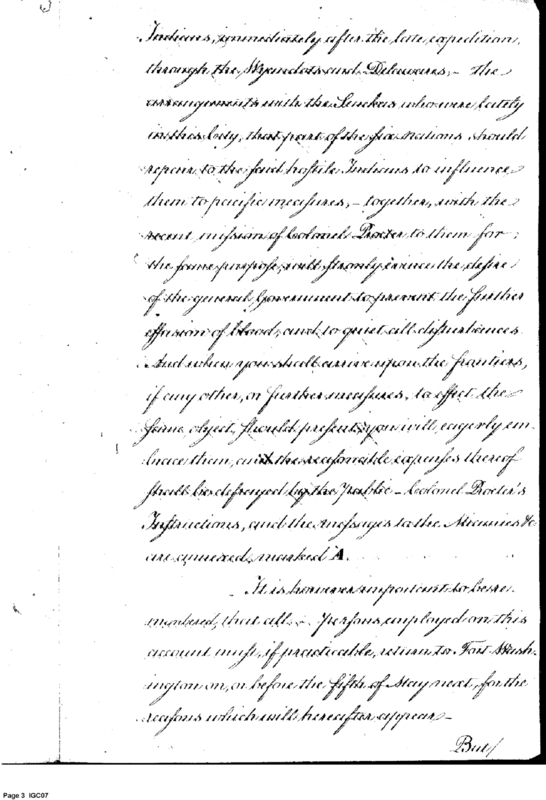 Indians, immediately after the late expedition,
through the Wyandots and Delawares, – the
arrangements with the Senekas who were lately
in this City, that part of the six Nations should
repair to the said hostile Indians to influence
them to pacific measures, – together, with the
recent mission of Colonel Procter to them for
the same purpose, will strongly evince the desire
of the general Government to prevent the further
effusion of blood, and to quiet all disturbances
And when you shall arrive upon the frontiers,
if any other, or further measures, to effect the
same object, should present, you will eagerly em-
brace them, and the reasonable expenses thereof
shall be defrayed by the Public – Colonel Procter's
Instructions, and the messages to the Miamies &c
are annexed, marked A.
It is however important to be re-
membered, that all persons employed on this
account must, if practicable, return to Fort Wash-
ington on, or before the fifth of May next, for the
reasons which will hereafter appear –
But/
Page 3 IGC07